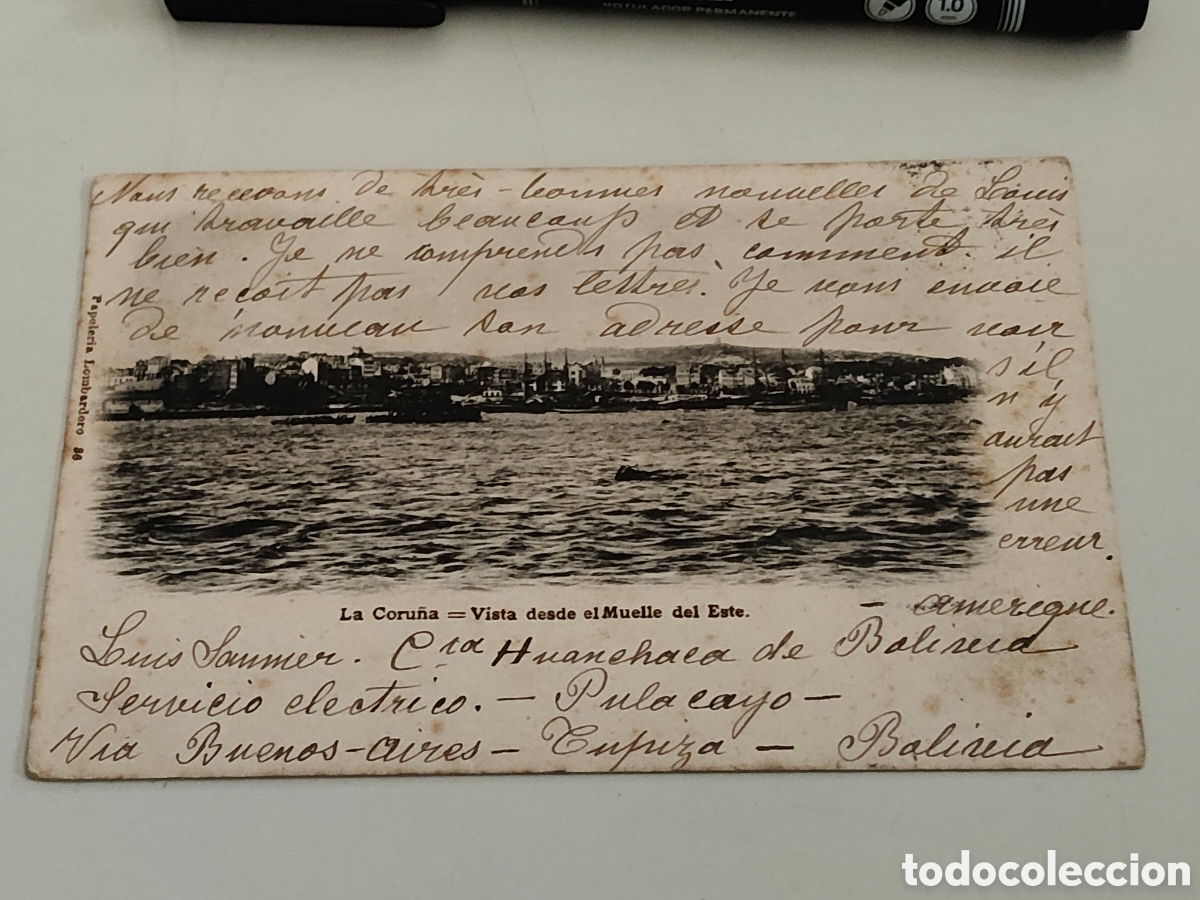 ROTULADOR PERMANENTE
1.0
Nous recevons de très-bonnes nouvelles de Louis
qui travaille beaucoup et se porte très
bien. Je ne comprends pas, comment il
ne reçoit pas vos lettres. Je vous envoie
de nouveau son adresse pour voir
s'il
n'y
aurait
pas
une
erreur.
Papeleria Lombardero 36
La Coruña = Vista desde el Muelle del Este.
- amereque.
Luis Saunier. Cia Huanchaca de Bolivia
Servicio electrico. - Pulacayo -
Via Buenos-aires - Tupiza - Bolivia
todocoleccion